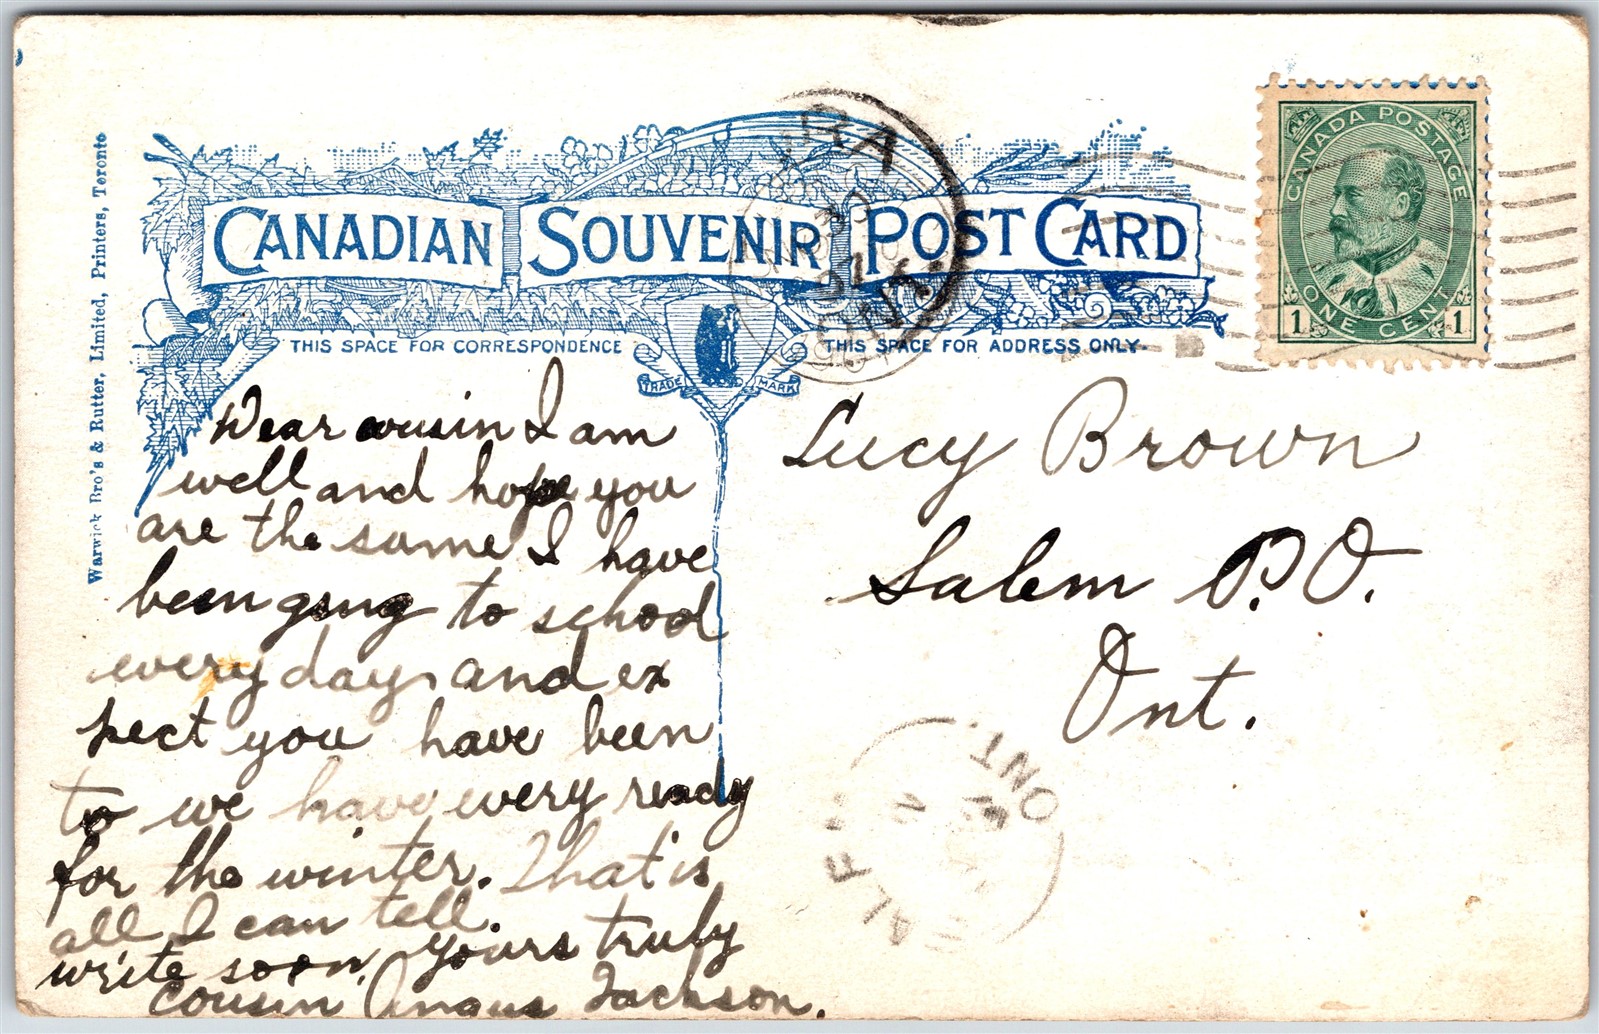 CANADIAN SOUVENIR POST CARD
THIS SPACE FOR CORRESPONDENCE
THIS SPACE FOR ADDRESS ONLY.
TRADE MARK
Warwick Bro's & Rutter, Limited, Printers, Toronto
CANADA POSTAGE
ONE CENT
1 1
RA
30
07
ONT.
Dear cousin I am
well and hope you
are the same I have
been going to school
every day and ex
pect you have been
to we have every ready
for the winter. That is
all I can tell.
write soon. yours truly
cousin Angus Jackson.
Lucy Brown
Salem P.O.
Ont.
ONT.